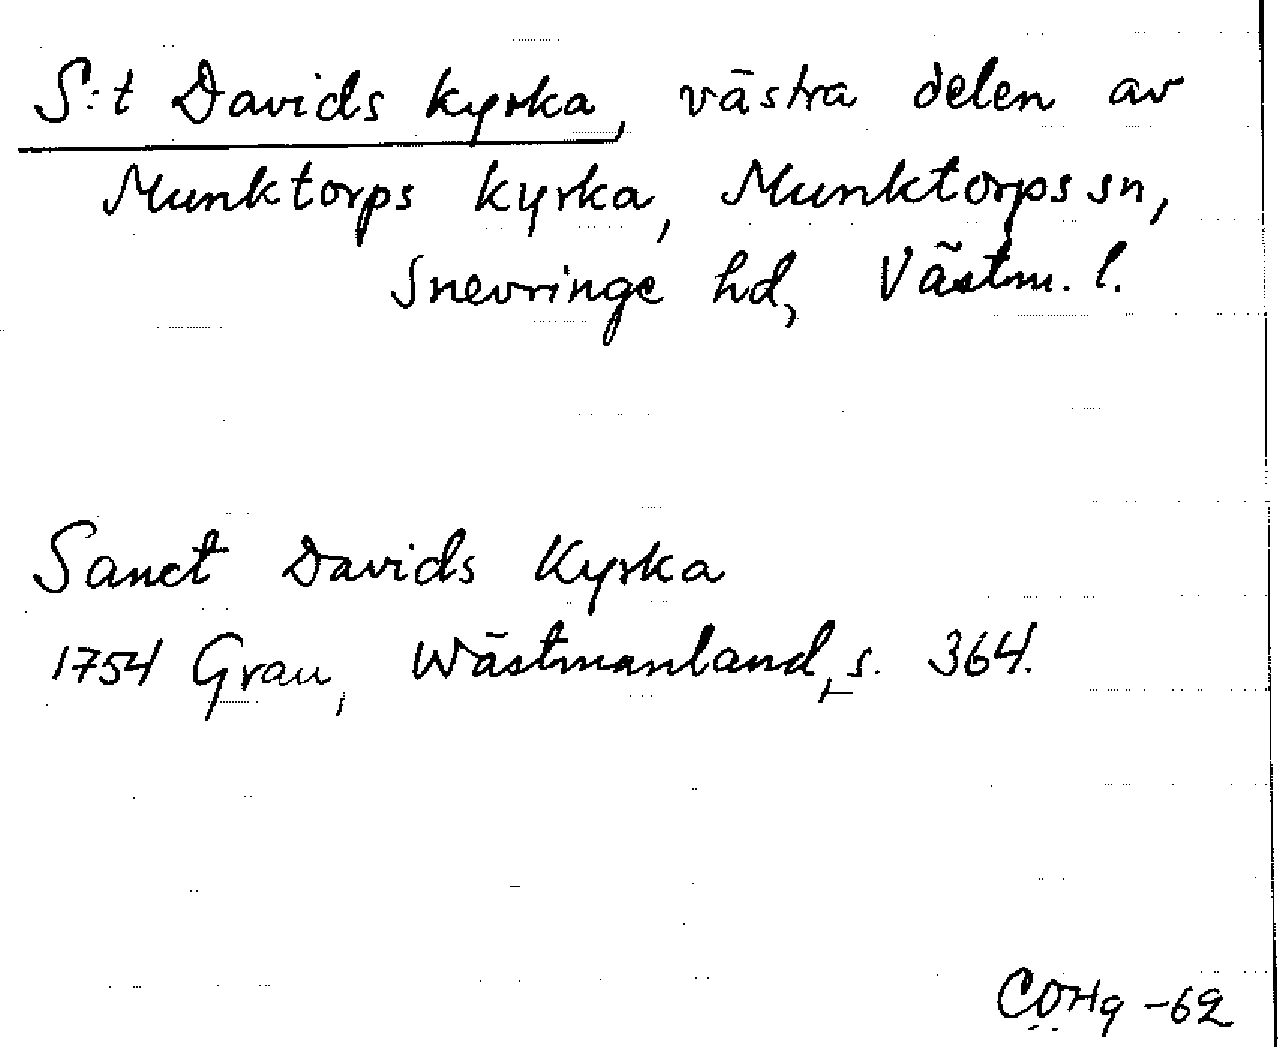 S:t Davids kyrka, västra delen av
Munktorps kyrka, Munktorps sn,
Snevringe hd, Västm. l.
Sanct Davids Kyrka
1754 Grau, Wästmanland, s. 364.
-62